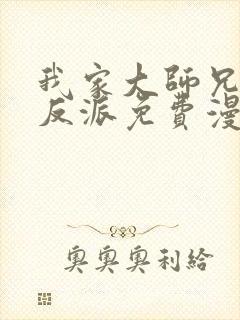 我家大師兄
反派免費漫
奧奧奧利給